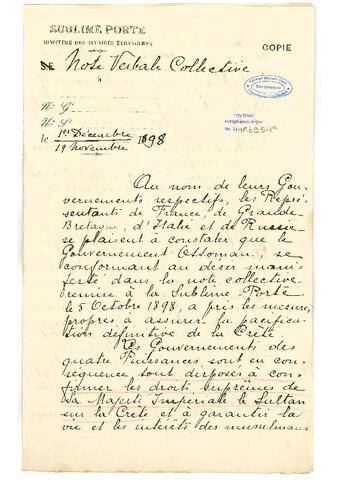 SUBLIME PORTE
MINISTÈRE DES AFFAIRES ÉTRANGÈRES
COPIE
Note Verbale Collective
à
TDV İSAM
Kütüphanesi Arşivi
No HHP.635-1
le 1er Décembre 1898
19 Novembre
Au nom de leurs Gou-
vernements respectifs, les Repré-
sentants de France, de Grande
Bretagne, d'Italie et de Russie
se plaisent à constater que le
Gouvernement Ottoman, se
conformant au désir mani-
festé dans la note collective
remise à la Sublime Porte
le 5 Octobre 1898, a pris les mesures
propres à assurer la pacifica-
tion définitive de la Crète.
Les Gouvernements des
quatre Puissances sont en con-
séquence sont disposés à con-
firmer les droits suprêmes de
Sa Majesté Impériale le Sultan
sur la Crète et à garantir la
vie et les intérêts des musulmans